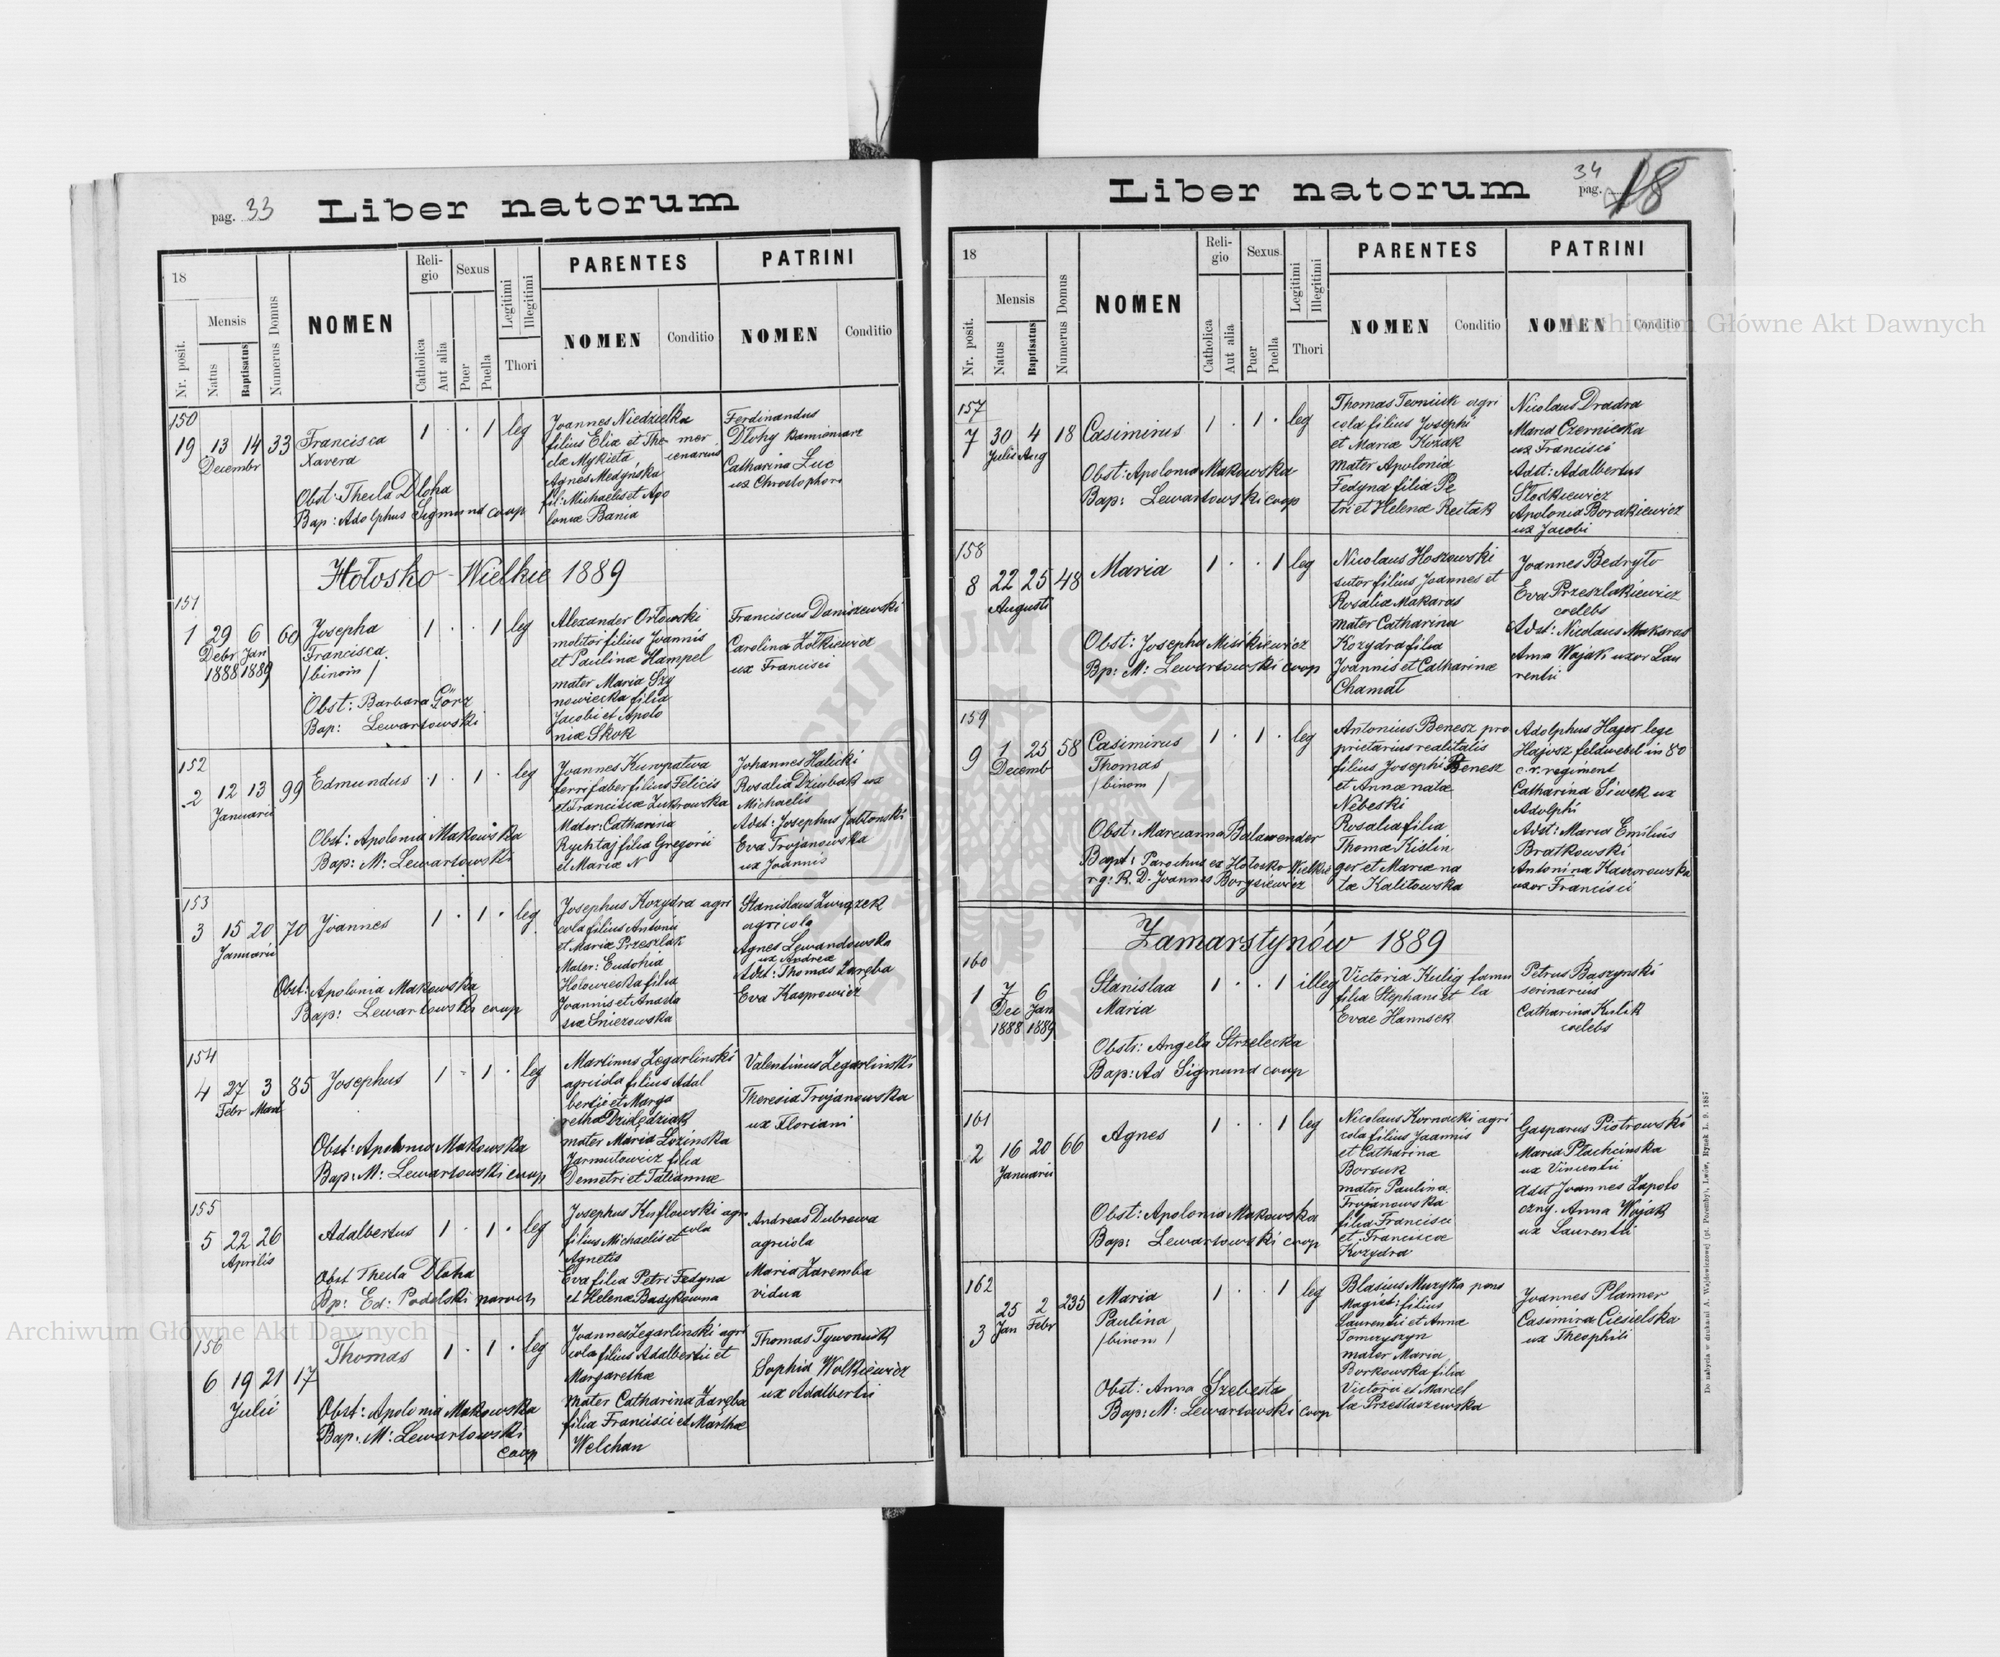 pag. 33
Liber natorum
18
Nr. posit.
Mensis
Natus
Baptisatus
Numerus Domus
NOMEN
Religio
Catholica
Aut alia
Sexus
Puer
Puella
Legitimi
Illegitimi
Thori
PARENTES
NOMEN
Conditio
PATRINI
NOMEN
Conditio
150
19 13 14 33 Francisca 1 . . 1 leg
Decembr
Xavera
Obst: Thecla Dloha
Bap: Adolphus Sigmund coop
Joannes Niedzielka
filius Eliæ et The mer
clæ Mykieta cenarius
Agnes Medyńska
fil: Michaelis et Apo
loniæ Bania
Ferdinandus
Dłohy kamieniarz
Catharina Luc
ux Christophori
Hołosko Wielkie 1889
151
1 29 6 60 Josepha 1 . . 1 leg
Debr Jan
1888 1889
Francisca
/binom/
Obst: Barbara Görz
Bap: Lewartowski
Alexander Orłowski
molitor filius Joannis
et Paulinæ Hampel
mater Maria Szy
nowiecka filia
Jacobi et Apolo
niæ Skok
Franciscus Daniszewski
Carolina Żółkiewicz
ux Francisci
152
2 12 13 99 Edmundus 1 . 1 . leg
Januarii
Obst: Apolonia Makowska
Bap: M: Lewartowski
Joannes Kuropatwa
ferrifaber filius Felicis
et Franciscæ Zukrowska
Mater: Catharina
Rychtaj filia Gregorii
et Mariæ N
Johannes Halicki
Rosalia Dziubak ux
Michaelis
Adst: Josephus Jabłonski
Eva Trojanowska
ux Joannis
153
3 15 20 70 Joannes 1 . 1 . leg
Januarii
Obst: Apolonia Makowska
Bap: Lewartowski coop
Josephus Kozydra agri
cola filius Antonii
et Mariæ Przeszlak
Mater: Eudohia
Hołowiecka filia
Joannis et Anasta
siæ Śnieżowska
Stanislaus Związek
agricola
Agnes Lewandowska
ux Andreæ
Adst: Thomas Zaręba
Eva Kasprowicz
154
4 27 3 85 Josephus 1 . 1 . leg
Febr Mart
Obst: Apolonia Makowska
Bap: M: Lewartowski coop
Martinus Zegarlinski
agricola filius Adal
berti et Marga
retha Dzidędziak
mater Maria Lozinska
Jarmułowicz filia
Demetri et Tatiannæ
Valentinus Zegarlinski
Theresia Trojanowska
ux Floriani
155
5 22 26 Adalbertus 1 . 1 . leg
Aprilis
Obst Thecla Dloha
Bp: Ed: Podolski paroch
Josephus Kuflowski agri
filius Michaelis et cola
Agnetis
Eva filia Petri Fedyna
et Helenæ Badykowna
Andreas Dubrowa
agricola
Maria Zaremba
vidua
156
6 19 21 17 Thomas 1 . 1 . leg
Julii
Obst: Apolonia Makowska
Bap: M: Lewartowski
coop
Joannes Zegarlinski agri
cola filius Adalberti et
Margarethæ
mater Catharina Zaręba
filia Francisci et Marthæ
Welchan
Thomas Tywoniuk
Sophia Wolkiewicz
ux Adalberti
34
pag. 18
Liber natorum
18
Nr. posit.
Mensis
Natus
Baptisatus
Numerus Domus
NOMEN
Religio
Catholica
Aut alia
Sexus
Puer
Puella
Legitimi
Illegitimi
Thori
PARENTES
NOMEN
Conditio
PATRINI
NOMEN
Conditio
157
7 30 4 18 Casimirus 1 . 1 . leg
Julii Aug
Obst: Apolonia Makowska
Bap: Lewartowski coop
Thomas Tewniuk agri
cola filius Josephi
et Mariæ Kozak
mater Apolonia
Fedyna filia Pe
tri et Helenæ Reitak
Nicolaus Dradra
Maria Czerniecka
ux Francisci
Adst: Adalbertus
Słodkiewicz
Apolonia Borakiewicz
ux Jacobi
158
8 22 25 48 Maria 1 . . 1 leg
Augusti
Obst: Josepha Misikiewicz
Bp: M: Lewartowski coop
Nicolaus Hoszowski
sutor filius Joannes et
Rosaliæ Makaras
mater Catharina
Kozydra filia
Joannis et Catharinæ
Chamał
Joannes Bedryło
Eva Przeszlakiewicz
cælebs
Adst: Nicolaus Makaras
Anna Wojak uxor Lau
rentii
159
9 1 25 58 Casimirus 1 . 1 . leg
Decemb
Thomas
/binom/
Obst: Marcianna Balawender
Bapt: Parochus ex Hołosko Wielkie
r.g: R. D. Joannes Borysiewicz
Antonius Benesz pro
prietarius realitatis
filius Josephi Benesz
et Annæ natæ
Nebeski
Rosalia filia
Thomæ Kislin
ger et Mariæ na
tæ Kalitowska
Adolphus Hajor lege
Hajosz feldwebel in 80
c. r. regiment
Catharina Siwek ux
Adolphi
Adst: Maria Emilius
Bratkowski
Antonina Kaworowska
uxor Francisci
Zamarstynów 1889
160
1 7 6 Stanislaa 1 . . 1 illeg
Dec Jan
1888 1889
Maria
Obstr: Angela Strzelecka
Bap: Ad Sigmund coop
Victoria Kulig famu
filia Stephani et la
Evae Hannsek
Petrus Baszynski
serinarius
Catharina Kulik
cælebs
161
2 16 20 66 Agnes 1 . . 1 leg
Januarii
Obst: Apolonia Makowska
Bap: Lewartowski coop
Nicolaus Kornacki agri
cola filius Joannis
et Catharinæ
Borsuk
mater Paulina
Trojanowska
filia Francisci
et Franciscæ
Kozydra
Gasparus Piotrowski
Maria Płachcinska
ux Vincentii
Adst Joannes Zapoto
czny. Anna Wójak
ux Laurentii
162
3 25 2 235 Maria 1 . . 1 leg
Jan Febr
Paulina
/binom/
Obst: Anna Szebesta
Bap: M: Lewartowski coop
Blasius Muzyka pens
Magist: filius
Laurentii et Annæ
Tomczyszyn
mater Maria
Borkowska filia
Victorii et Marcel
læ Przestaszewska
Joannes Planner
Casimira Ciesielska
ux Theophili
Do nabycia w drukarni A. Wajdowiczowej (pl. Poremby), Lwów, Rynek L. 9. 1887
Archiwum Główne Akt Dawnych
Archiwum Główne Akt Dawnych